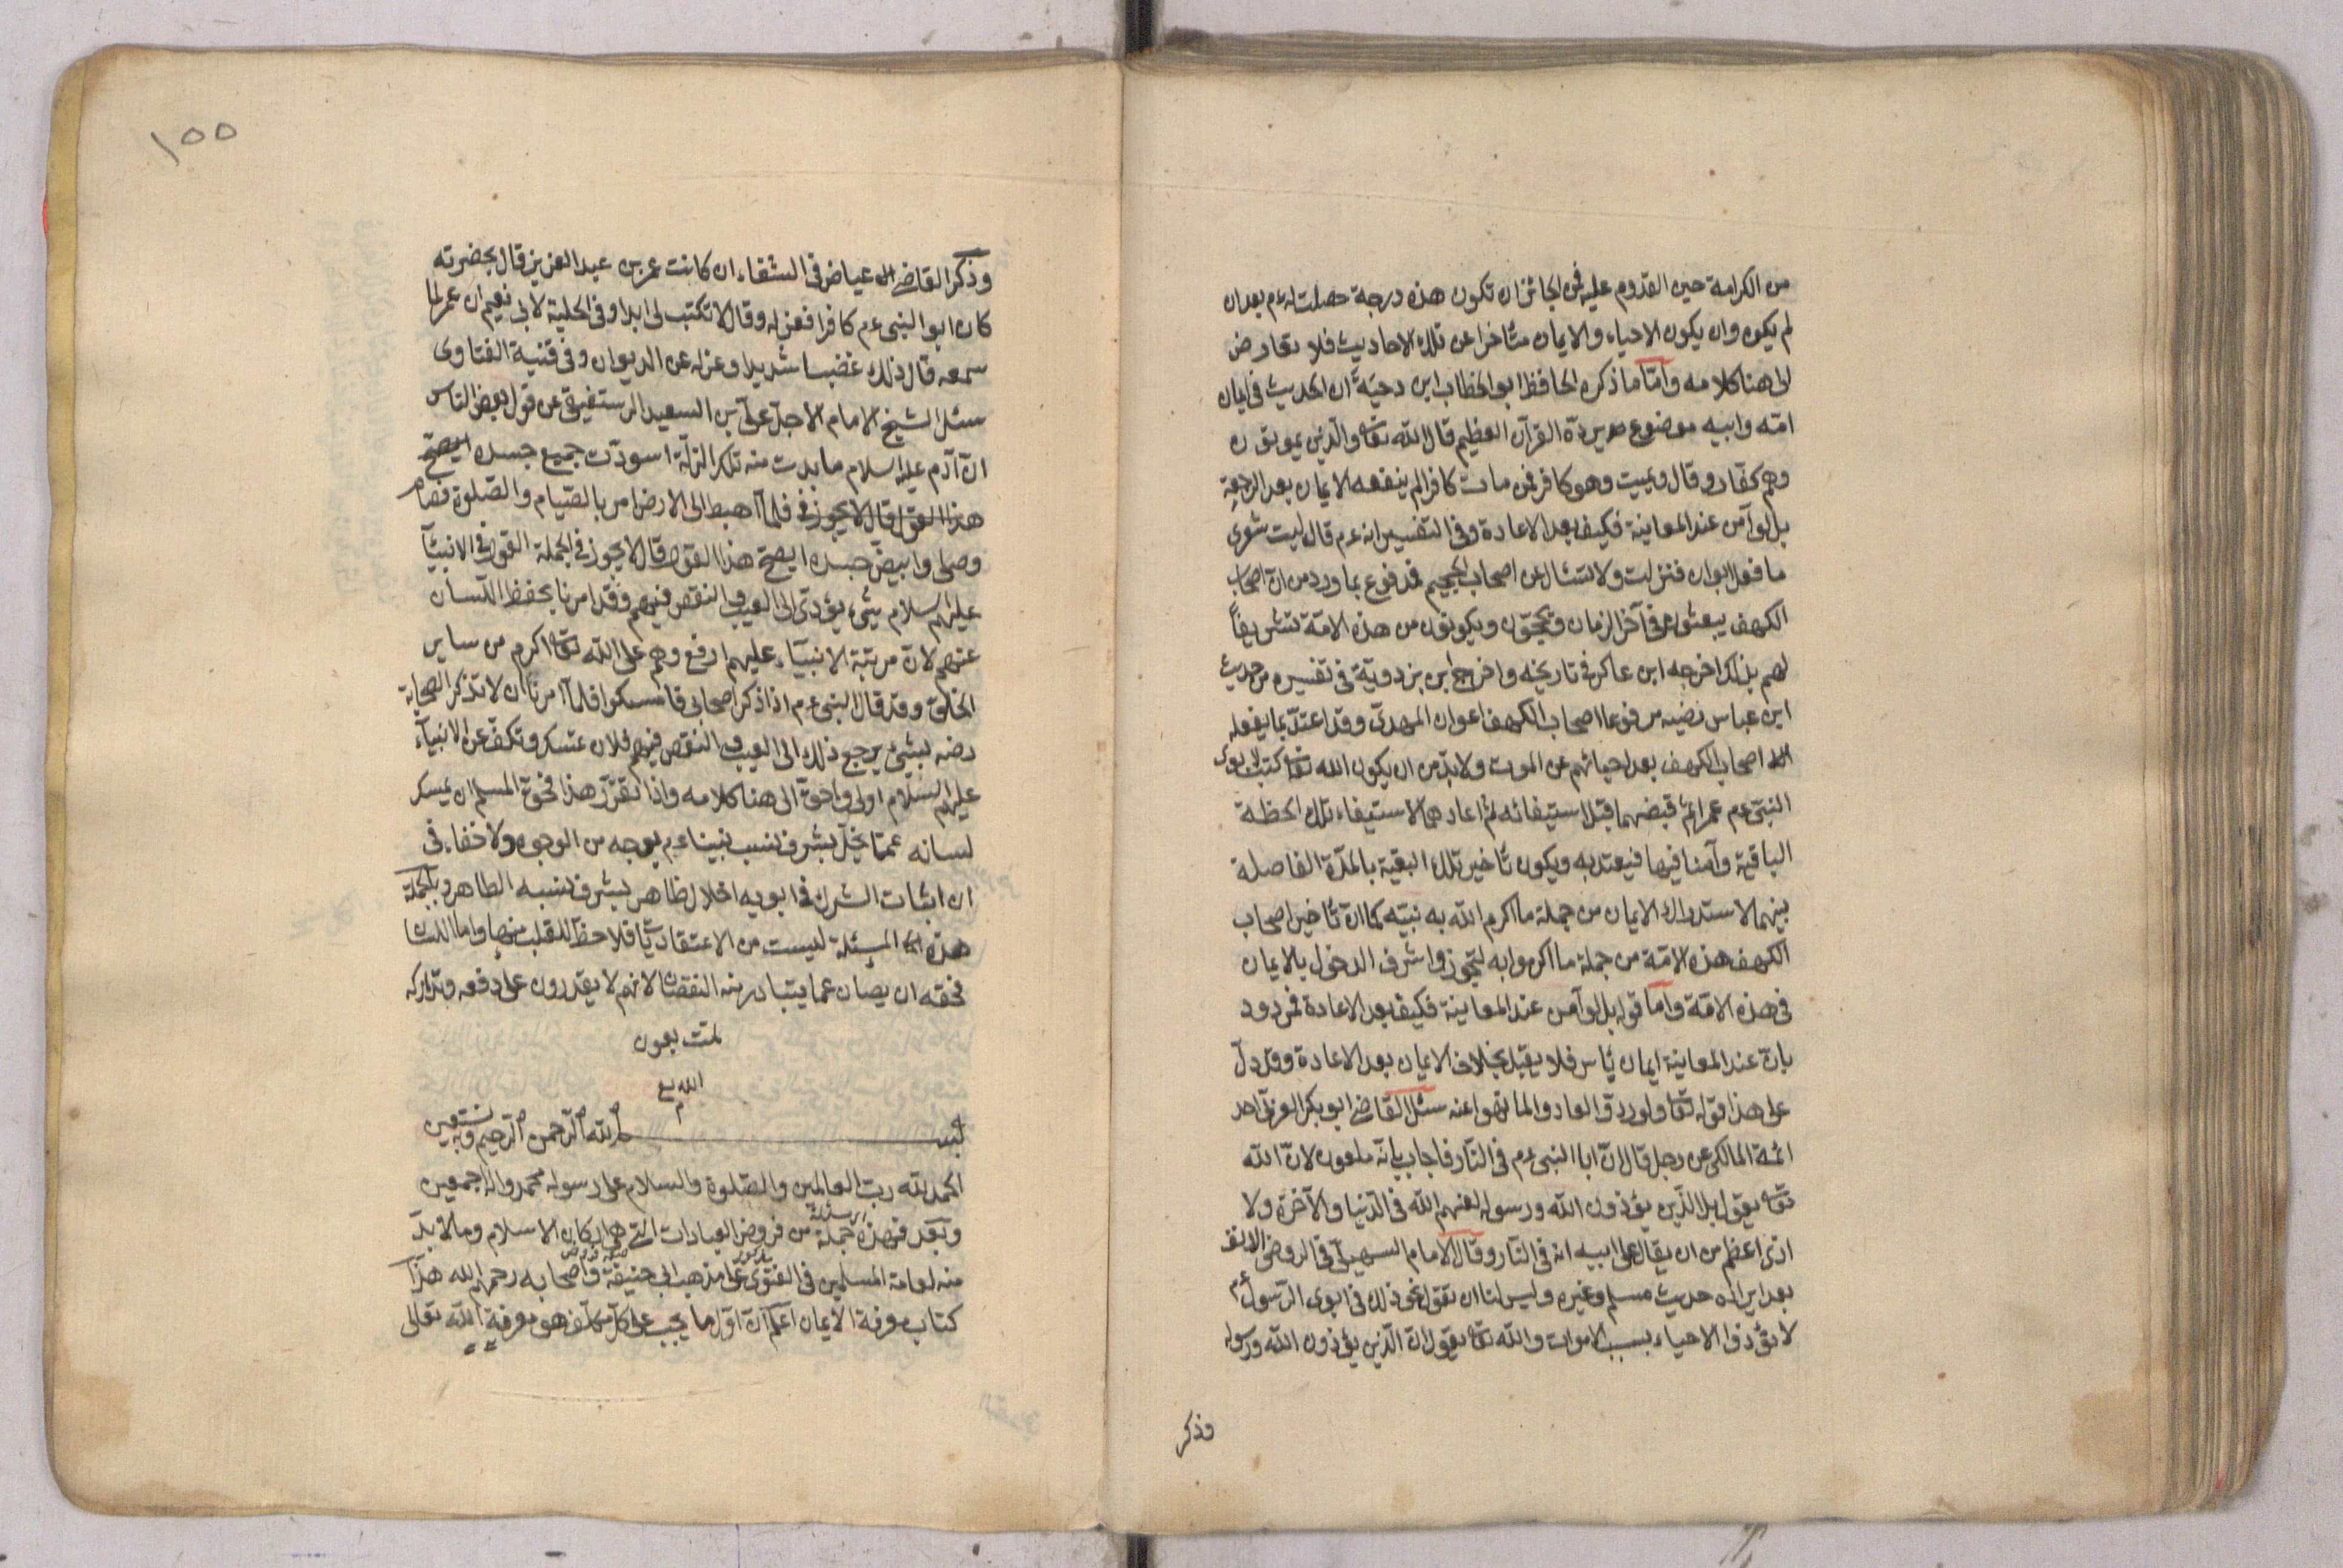 من الكرامة حين القدوم عليه فمن الجائز ان تكون هذه درجة حصلت له ءم بعد ان
لم يكون وان يكون الاحياء والايمان متاخرا عن تلك الاحاديث فلا تعارض
الى هنا كلامه وامّا ما ذكره الحافظ ابو الخطاب ابن دحيّة ان الحديث فى ايمان
امّه وابيه موضوع يردّه القرآن العظيم قال الله تعا والّذين يموتون
وهم كفّار وقال ويميت وهو كافر فمن مات كافرا لم ينفعه الايمان بعد الرجعة
بل لو آمن عند المعاينة فكيف بعد الاعادة وفى التفسير انه ءم قال ليت شعرى
ما فعل ابوان فنزلت ولا تسئال عن اصحاب الجحيم فمدفوع بما ورد من ان اصحاب
الكهف يبعثون فى آخر الزمان ويحجّون ويكونون من هذه الامّة تشريفاً
لهم بذلك اخرجه ابن عاكر فى تاريخه واخرج ابن بزدويّة فى تفسيره من حديث
ابن عباس رضيه مرفوعا اصحاب الكهف اعوان المهدىّ وقد اعتدّ بما يفعله
اصحاب الكهف بعد احيائهم عن الموت ولا بدّ من ان يكون الله تعا كتب لابوى
النبى ءم عمرا ثم قبضهما قبل استيفائه ثم اعادهما لاستيفاء تلك الحظة
الباقية وآمنا فيها فيعتد به ويكون تاخير تلك البقية بالمدّة الفاصلة
بينهما لاستدراك الايمان من جملة ما اكرم الله به نبيّه كما انّ تاخير اصحاب
الكهف هذه الامّة من جملة ما اكرموا به لتحوزوا شرف الدخول بالايمان
فى هذه الامّة واما قوله بل لو آمن عند المعاينة فكيف بعد الاعادة فمردود
بان عند المعاينة ايمان ئاس فلا يقبل بخلاف الايمان بعد الاعادة وقد دلّ
على هذا قوله تعا ولو ردّوا لعادوا لما نهوا عنه سئل القاضى ابو بكر العربىّ احد
ائمة المالكى عن رجل قال انّ ابا النبى ءم فى النّار فاجاب بانّه ملعون لانّ الله
تعا يقول انّ الّذين يؤذون الله ورسوله لعنهم الله فى الدّنيا والآخرة ولا
اذى اعظم من ان يقال على ابيه انه فى النّار وقال الامام السهيلىّ فى الروض الانف
بعد ايراده حديث مسلم وغيره وليس لنا ان نقول نحو ذلك فى ابوى الرّسول ءم
لا تؤذوا الاحياء بسبب الاموات والله تعا يقول انّ الّذين يؤذون الله ورسوله
وذكر
١٥٥
وذكر القاضى عياض فى الشفاء ان كاتب عمر بن عبد العزيز قال بحضرته
كان ابو النبى ءم كافرا فعزله وقال لا تكتب لى ابدا وفى الحلية لابى نعيم ان عمر لما
سمعه قال ذلك غضبا شديدا وعزله عن الديوان وفى قنية الفتاوى
سئل الشيخ الامام الاجل علىّ بن السعيد الرستغفنى عن قول بعض الناس
انّ آدم عليه السلام ما بدت منه تلك الزلّة اسودّت جميع جسده ايصحّ
هذا القول قال لا يجوز فلمّا اهبط الى الارض امر بالصّيام والصّلوة فصام
وصلى وابيضّ جسده ايصحّ هذا القول قال لا يجوز فى الجملة القول فى الانبيآ
عليهم السلام بشىء يؤدّى الى العيب والنقص فيهم وقد امرنا بحفظ اللّسان
عنهم لانّ مرتبة الانبيآء عليهم ارفع وهم على الله تعا اكرم من ساير
الخلق وقد قال النبى ءم اذا ذكر اصحابى فامسكوا فلمّا امرنا ان لا نذكر الصحابة
رضه بشىء يرجع ذلك الى العيب والنقص فيهم فلان نمسك ونكفّ عن الانبيآء
عليهم السلام اولى واحقّ الى هنا كلامه واذا تقرّر هذا فحقّ المسلم ان يمسك
لسانه عمّا يخلّ بشرف نسب نبيناءم بوجه من الوجوه ولا خفاء فى
ان اثبات الشرك فى ابويه اخلال ظاهر بشرف نسبه الطاهر وبالجملة
هذه المسئلة ليست من الاعتقاديّات فلا حظّ للقلب منها واما اللسان
فحقه ان يصان عما يتبادر منه النقصان لانهم لا يقدرون على دفعه وتداركه
تمت بعون
الله تع
م
بسم الله الرّحمن الرّحيم وبه نستعين
الحمد لله ربّ العالمين والصّلوة والسلام على رسوله محمد واله اجمعين
وبعد فهذه الرسالة جملة من فروض العبادات الّتى هى اركان الاسلام وما لا بدّ
منه لعامة المسلمين فى الفتوى على مذهب ابى حنيفة واصحابه رحمهم الله هذا
كتاب معرفة الايمان اعلم انّ اوّل ما يجب على كلّ مكلّف هو معرفة الله تعالى